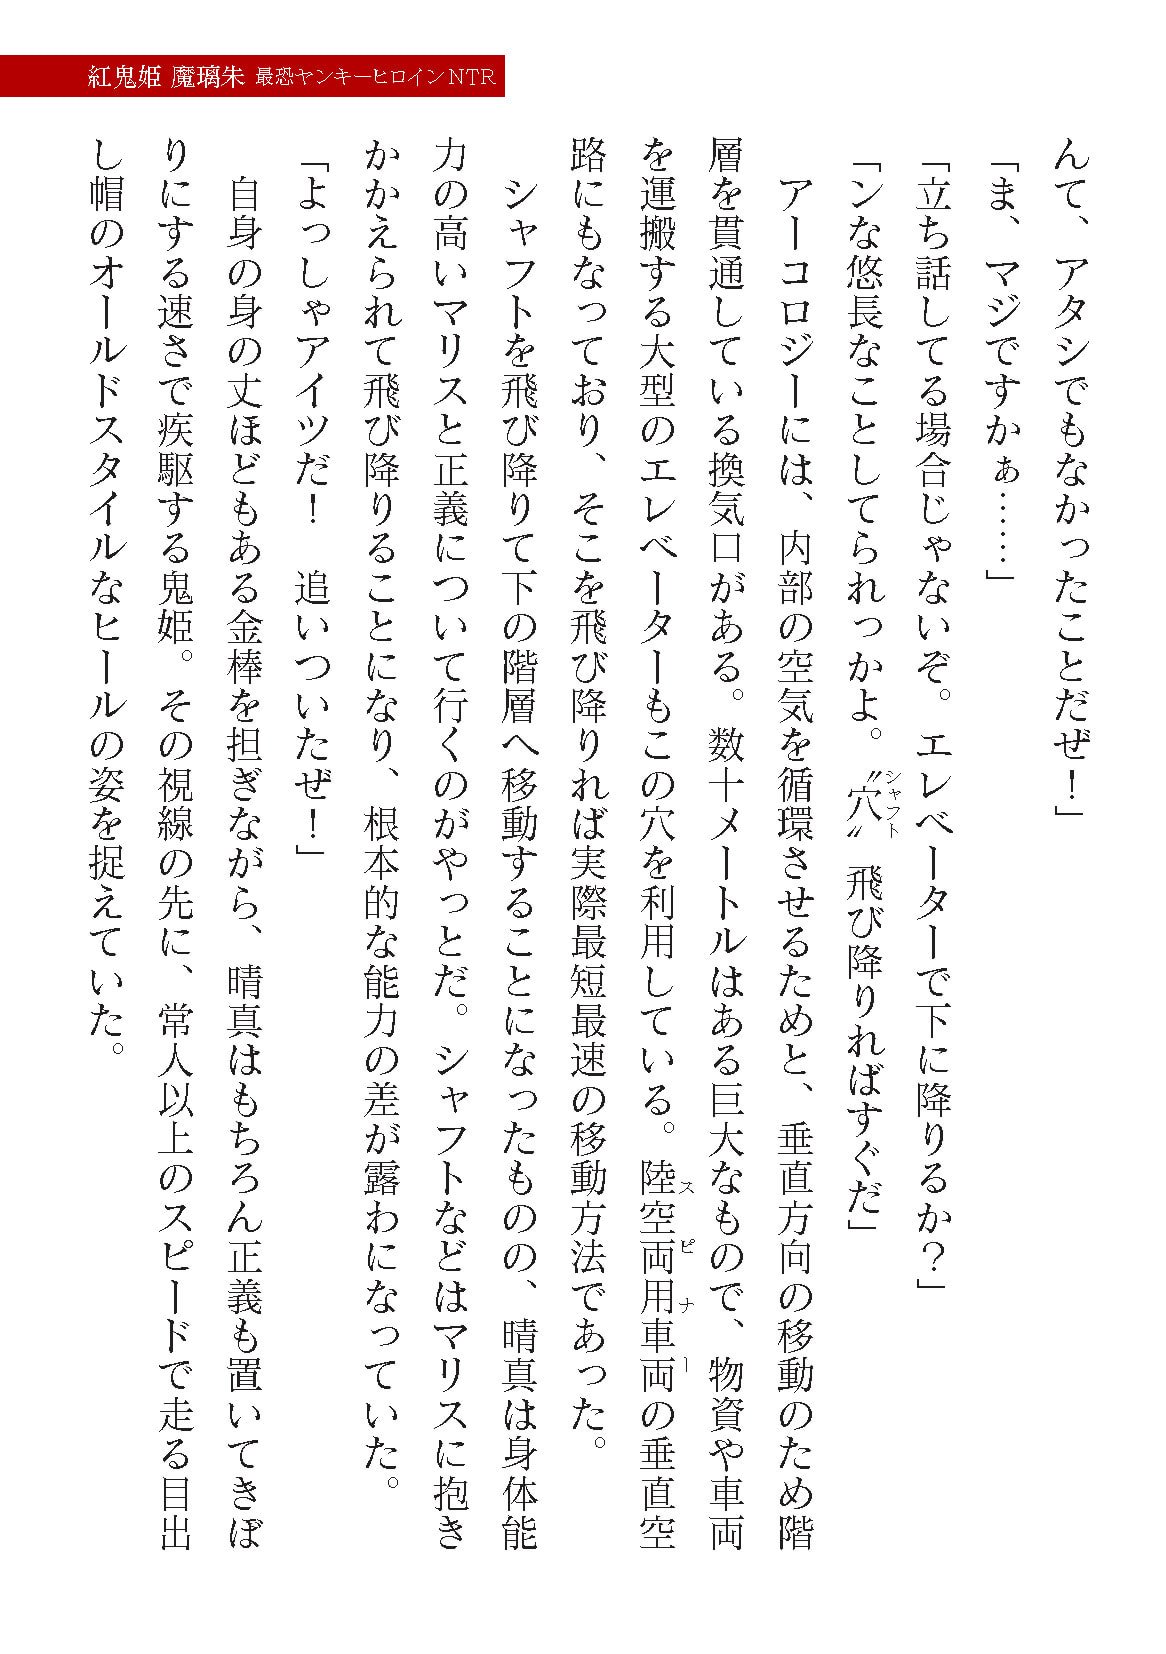 紅鬼姫 魔璃朱 最恐ヤンキーヒロインNTR
んて、アタシでもなかったことだぜ！」
「ま、マジですかぁ……」
「立ち話してる場合じゃないぞ。エレベーターで下に降りるか？」
「ンな悠長なことしてられっかよ。〝穴〟飛び降りればすぐだ」
シャフト
　アーコロジーには、内部の空気を循環させるためと、垂直方向の移動のため階
層を貫通している換気口がある。数十メートルはある巨大なもので、物資や車両
を運搬する大型のエレベーターもこの穴を利用している。陸空両用車両の垂直空
スピナー
路にもなっており、そこを飛び降りれば実際最短最速の移動方法であった。
　シャフトを飛び降りて下の階層へ移動することになったものの、晴真は身体能
力の高いマリスと正義について行くのがやっとだ。シャフトなどはマリスに抱き
かかえられて飛び降りることになり、根本的な能力の差が露わになっていた。
「よっしゃアイツだ！　追いついたぜ！」
　自身の身の丈ほどもある金棒を担ぎながら、晴真はもちろん正義も置いてきぼ
りにする速さで疾駆する鬼姫。その視線の先に、常人以上のスピードで走る目出
し帽のオールドスタイルなヒールの姿を捉えていた。